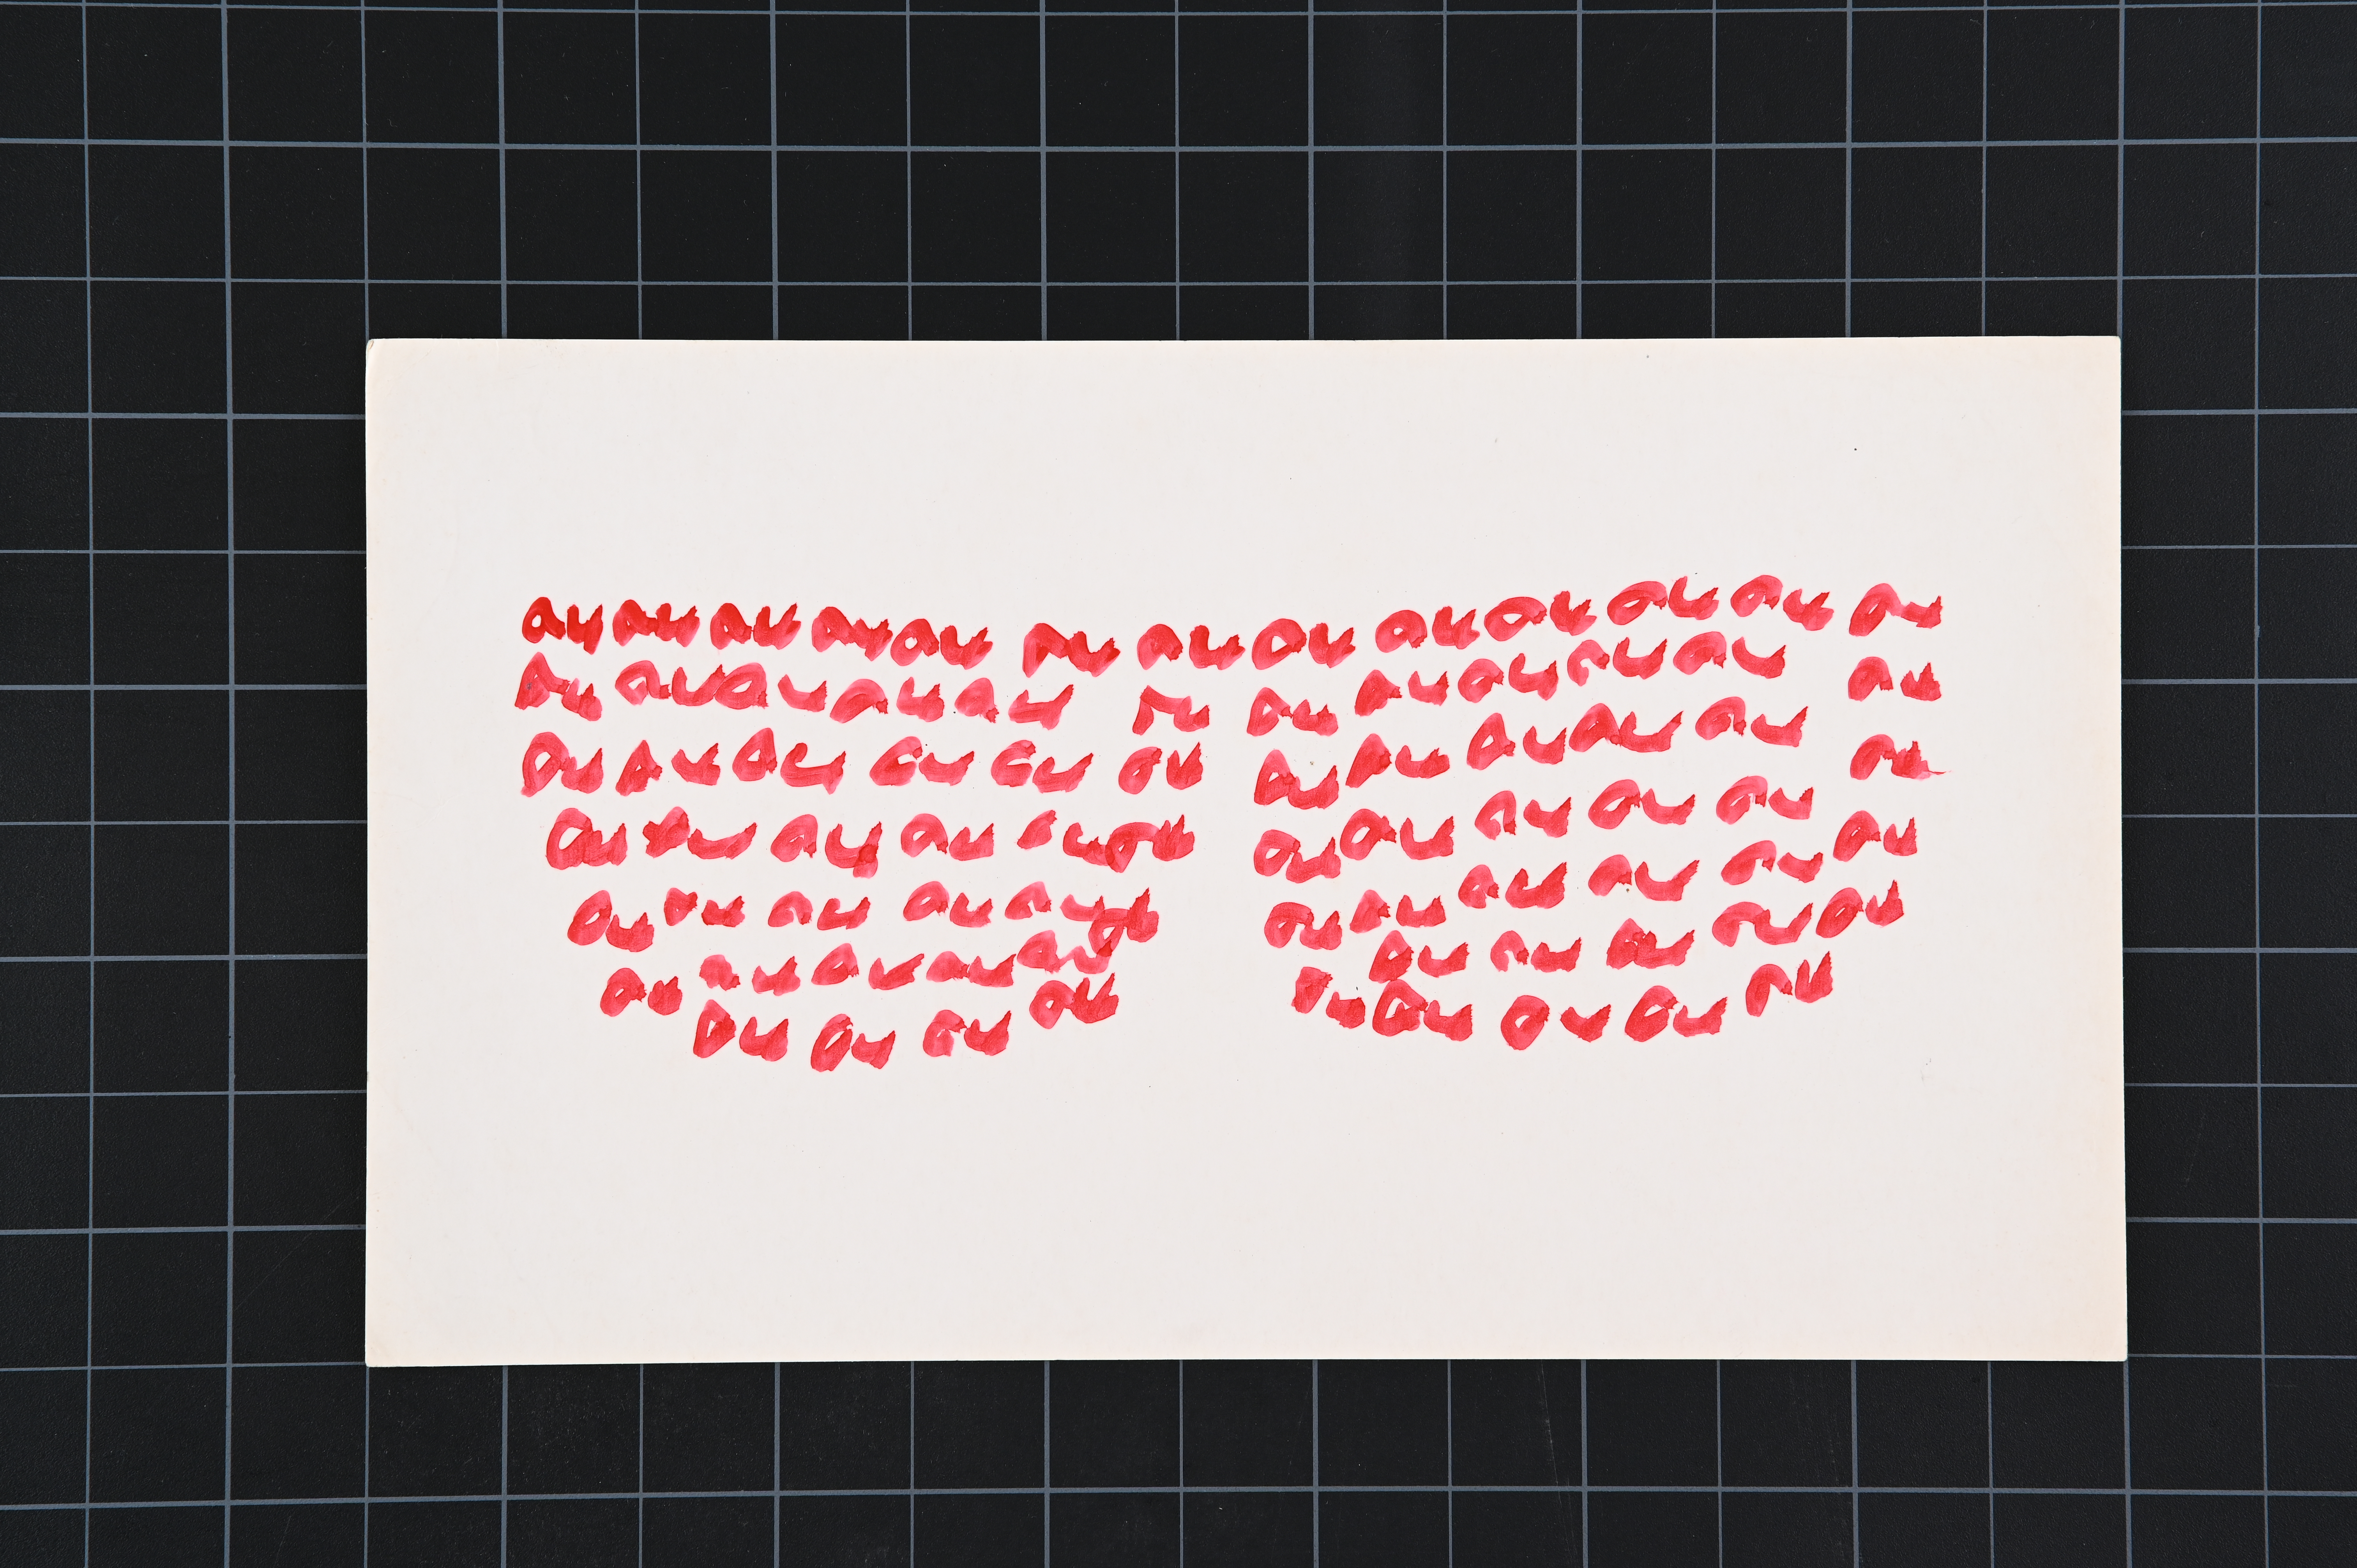 au au au au au au au au au au au au au
au au au au au au au au au au au au
au au au au au au au au au au au au
au au au au au au au au au au au au
au au au au au au au au au au au au
au au au au au au au au au
au au au au au au au au au